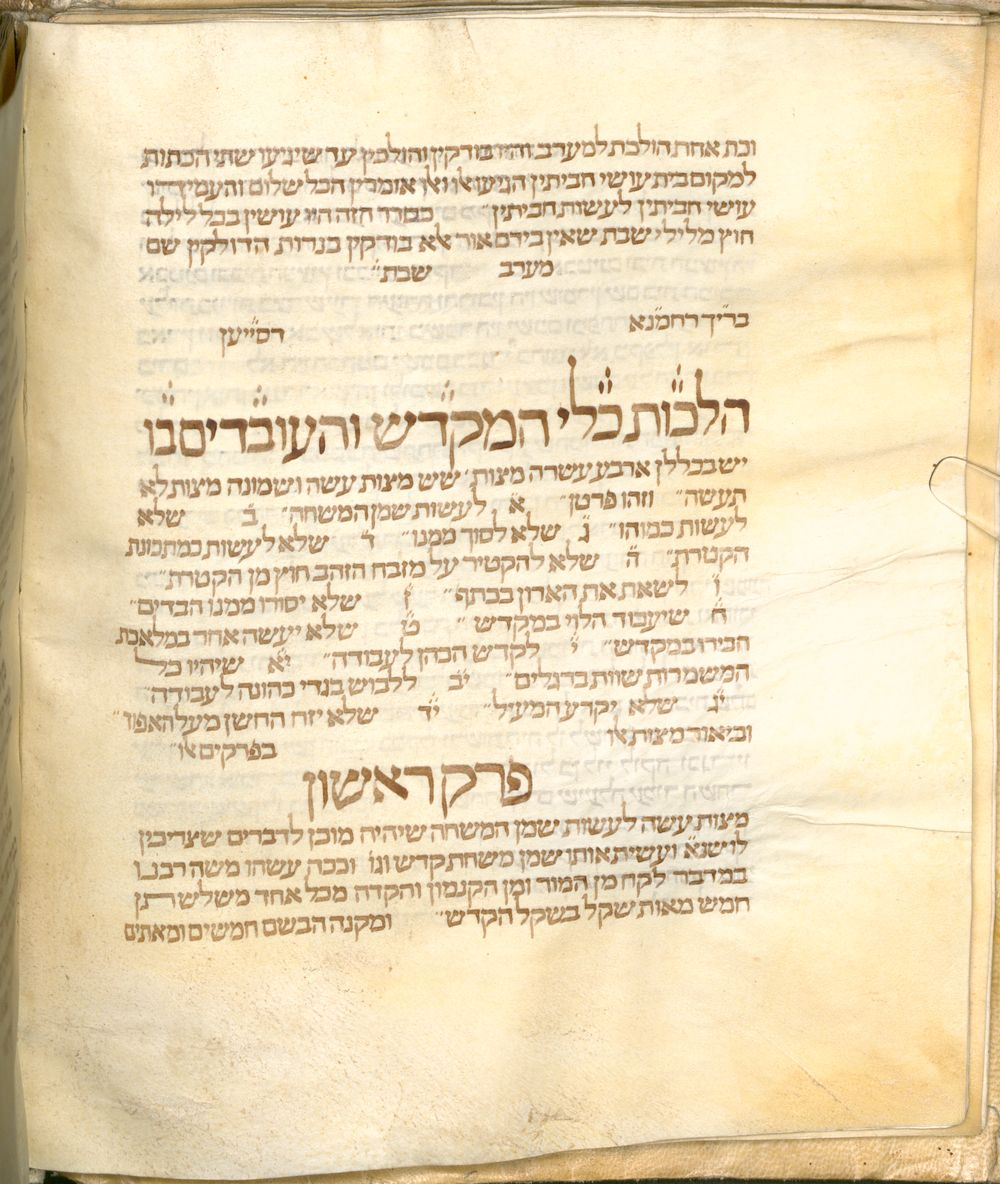 וכת אחת הולכת למערב והיו בודקין והולכין עד שיגיעו שתי הכתות
למקום בית עושי חביתין הגיעו אלו ואלו אומרין הכל שלום והעמידו
עושי חביתין לעשות חביתין״ כסדר הזה היו עושין בכל לילה
חוץ מלילי שבת שאין בידם אור אלא בודקין בנרות הדולקין שם
מערב שבת״
בריך רחמנא דסייען
הלכות כלי המקדש והעובדים בו
יש בכללן ארבע עשרה מצות שש מצות עשה ושמונה מצות לא
תעשה״ וזהו פרטן״ א לעשות שמן המשחה״ ב שלא
לעשות כמוהו״ ג שלא לסוך ממנו״ ד שלא לעשות כמתכונת
הקטרת״ ה שלא להקטיר על מזבח הזהב חוץ מן הקטרת״
ו לשאת את הארון בכתף״ ז שלא יסורו ממנו הבדים״
ח שיעבוד הלוי במקדש״ ט שלא ייעשה אחד במלאכת
חבירו במקדש״ י לקדש הכהן לעבודה״ יא שיהיו כל
המשמרות שוות ברגלים״ יב ללבוש בגדי כהונה לעבודה״
יג שלא יקרע המעיל״ יד שלא יזח החשן מעל האפוד״
וביאור מצות אלו בפרקים אלו״
פרק ראשון
מצות עשה לעשות שמן המשחה שיהיה מוכן לדברים שצריכין
לו שנא׳ ועשית אותו שמן משחת קדש וגו׳ וככה עשהו משה רבנו
במדבר לקח מן המור ומן הקנמון והקדה מכל אחד משלשתן
חמש מאות שקל בשקל הקדש״ ומקנה הבשם חמשים ומאתים